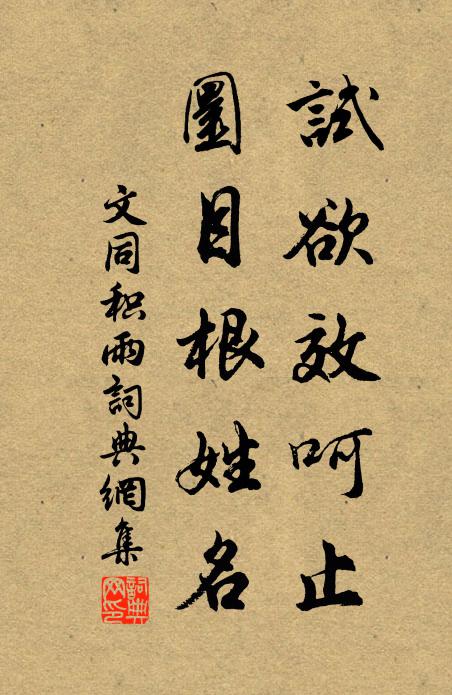 試欲效呵止
圖目根姓名
文同积雨詞典網集
詞典網印